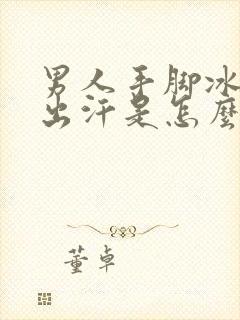 男人手脚冰
出汗是怎麼
董卓